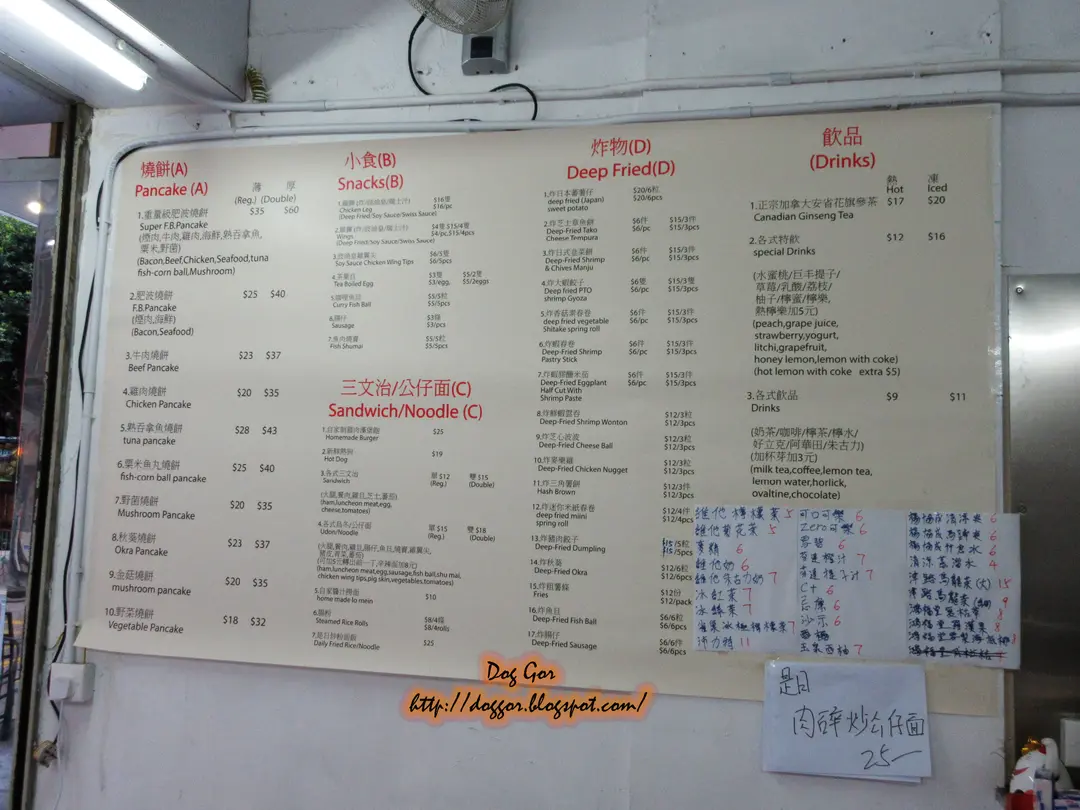 燒餅(A)
Pancake (A)
薄 厚
(Reg.) (Double)
1.重量級肥波燒餅 $35 $60
Super F.B.Pancake
(煙肉,牛肉,雞肉,海鮮,熟吞拿魚,
粟米,野菌)
(Bacon,Beef,Chicken,Seafood,tuna
fish-corn ball,Mushroom)
2.肥波燒餅 $25 $40
F.B.Pancake
(煙肉,海鮮)
(Bacon,Seafood)
3.牛肉燒餅 $23 $37
Beef Pancake
4.雞肉燒餅 $20 $35
Chicken Pancake
5.熟吞拿魚燒餅 $28 $43
tuna pancake
6.粟米魚丸燒餅 $25 $40
fish-corn ball pancake
7.野菌燒餅 $20 $35
Mushroom Pancake
8.秋葵燒餅 $23 $37
Okra Pancake
9.金菇燒餅 $20 $35
mushroom pancake
10.野菜燒餅 $18 $32
Vegetable Pancake
小食(B)
Snacks(B)
$16/pc
Chicken Leg
(Deep Fried/Soy Sauce/Swiss Sauce)
$4隻 $15/4隻
Wings $4/pc,$15/4pcs
(Deep Fried/Soy Sauce/Swiss Sauce)
3.豉油皇雞翼尖 $6/5隻
Soy Sauce Chicken Wing Tips $6/5pcs
4.茶葉蛋 $3隻 $5/2隻
Tea Boiled Egg $3/egg, $5/2eggs
5.咖喱魚旦 $5/5粒
Curry Fish Ball $5/5pcs
6.腸仔 $3條
Sausage $3/pcs
7.魚肉燒賣 $5/5粒
Fish Shumai $5/5pcs
三文治/公仔面(C)
Sandwich/Noodle (C)
1.自家制雞肉漢堡飽 $25
Homemade Burger
2.新鮮熱狗 $19
Hot Dog
3.各式三文治 單 $12 雙 $15
Sandwich (Reg.) (Double)
(火腿,餐肉,雞旦,芝士,蕃茄)
(ham,luncheon meat,egg,
cheese,tomatoes)
4.各式烏冬/公仔面 單 $15 雙 $18
Udon/Noodle (Reg.) (Double)
(火腿,餐肉,雞旦,腸仔,魚旦,燒賣,雞翼尖,
豬皮,青菜,蕃茄)
(ham,luncheon meat,egg,sausage,fish ball,shu mai,
chicken wing tips,pig skin,vegetables,tomatoes)
5.自家醬汁撈面 $10
home made lo mein
6.腸粉 $8/4條
Steamed Rice Rolls $8/4rolls
7.是日炒粉面飯 $25
Daily Fried Rice/Noodle
炸物(D)
Deep Fried(D)
1.炸日本蕃薯仔 $20/6粒
deep fried (Japan) $20/6pcs
sweet potato
2.炸芝士章魚餅 $6件 $15/3件
Deep-Fried Tako $6/pc $15/3pcs
Cheese Tempura
3.炸日式韭菜餅 $6件 $15/3件
Deep-Fried Shrimp $6/pc $15/3pcs
& Chives Manju
4.炸大蝦餃子 $6隻 $15/3隻
Deep fried PTO $6/pc $15/3pcs
shrimp Gyoza
5.炸香菇素春卷 $6件 $15/3件
deep fried vegetable $6/pc $15/3pcs
Shitake spring roll
6.炸蝦春卷 $6件 $15/3件
Deep-Fried Shrimp $6/pc $15/3pcs
Pastry Stick
7.炸蝦膠釀米茄 $6件 $15/3件
Deep-Fried Eggplant $6/pc $15/3pcs
Half Cut With
Shrimp Paste
8.炸鮮蝦雲吞 $12/3粒
Deep-Fried Shrimp Wonton $12/3pcs
9.炸芝心波波 $12/3粒
Deep-Fried Cheese Ball $12/3pcs
10.炸麥樂雞 $12/3粒
Deep-Fried Chicken Nugget $12/3pcs
11.炸三角薯餅 $12/3件
Hash Brown $12/3pcs
12.炸迷你米紙春卷 $12/4件
deep fried miini $12/4pcs
spring roll
13.炸豬肉餃子 $15/5粒
Deep-Fried Dumpling $15/5pcs
14.炸秋葵 $12/6粒
Deep-Fried Okra $12/6pcs
15.炸粗薯條 $12/份
Fries $12/pack
16.炸魚旦 $6/6粒
Deep-Fried Fish Ball $6/6pcs
17.炸腸仔 $6/6件
Deep-Fried Sausage $6/6pcs
飲品
(Drinks)
熱 凍
Hot Iced
1.正宗加拿大安省花旗參茶 $17 $20
Canadian Ginseng Tea
2.各式特飲 $12 $16
special Drinks
(水蜜桃/巨丰提子/
草莓/乳酸/荔枝/
柚子/檸蜜/檸樂,
熱檸樂加5元)
(peach,grape juice,
strawberry,yogurt,
litchi,grapefruit,
honey lemon,lemon with coke)
(hot lemon with coke extra $5)
3.各式飲品 $9 $11
Drinks
(奶茶/咖啡/檸茶/檸水/
好立克/阿華田/朱古力)
(加杯芽加3元)
(milk tea,coffee,lemon tea,
lemon water,horlick,
ovaltine,chocolate)
維他檸檬茶 5
維他菊花茶 5
麥精 6
維他奶 6
維他朱古力奶 7
冰紅茶 7
冰綠茶 7
7
11
可口可樂 6
Zero可樂 6
雪碧 6
7
7
C+ 6
忌廉 6
沙示 6
玉泉西柚 7
6
6
6
清涼蒸溜水 4
15
9
8
8
8
是日
肉碎炒公仔面
25—
Dog Gor
http://doggor.blogspot.com/